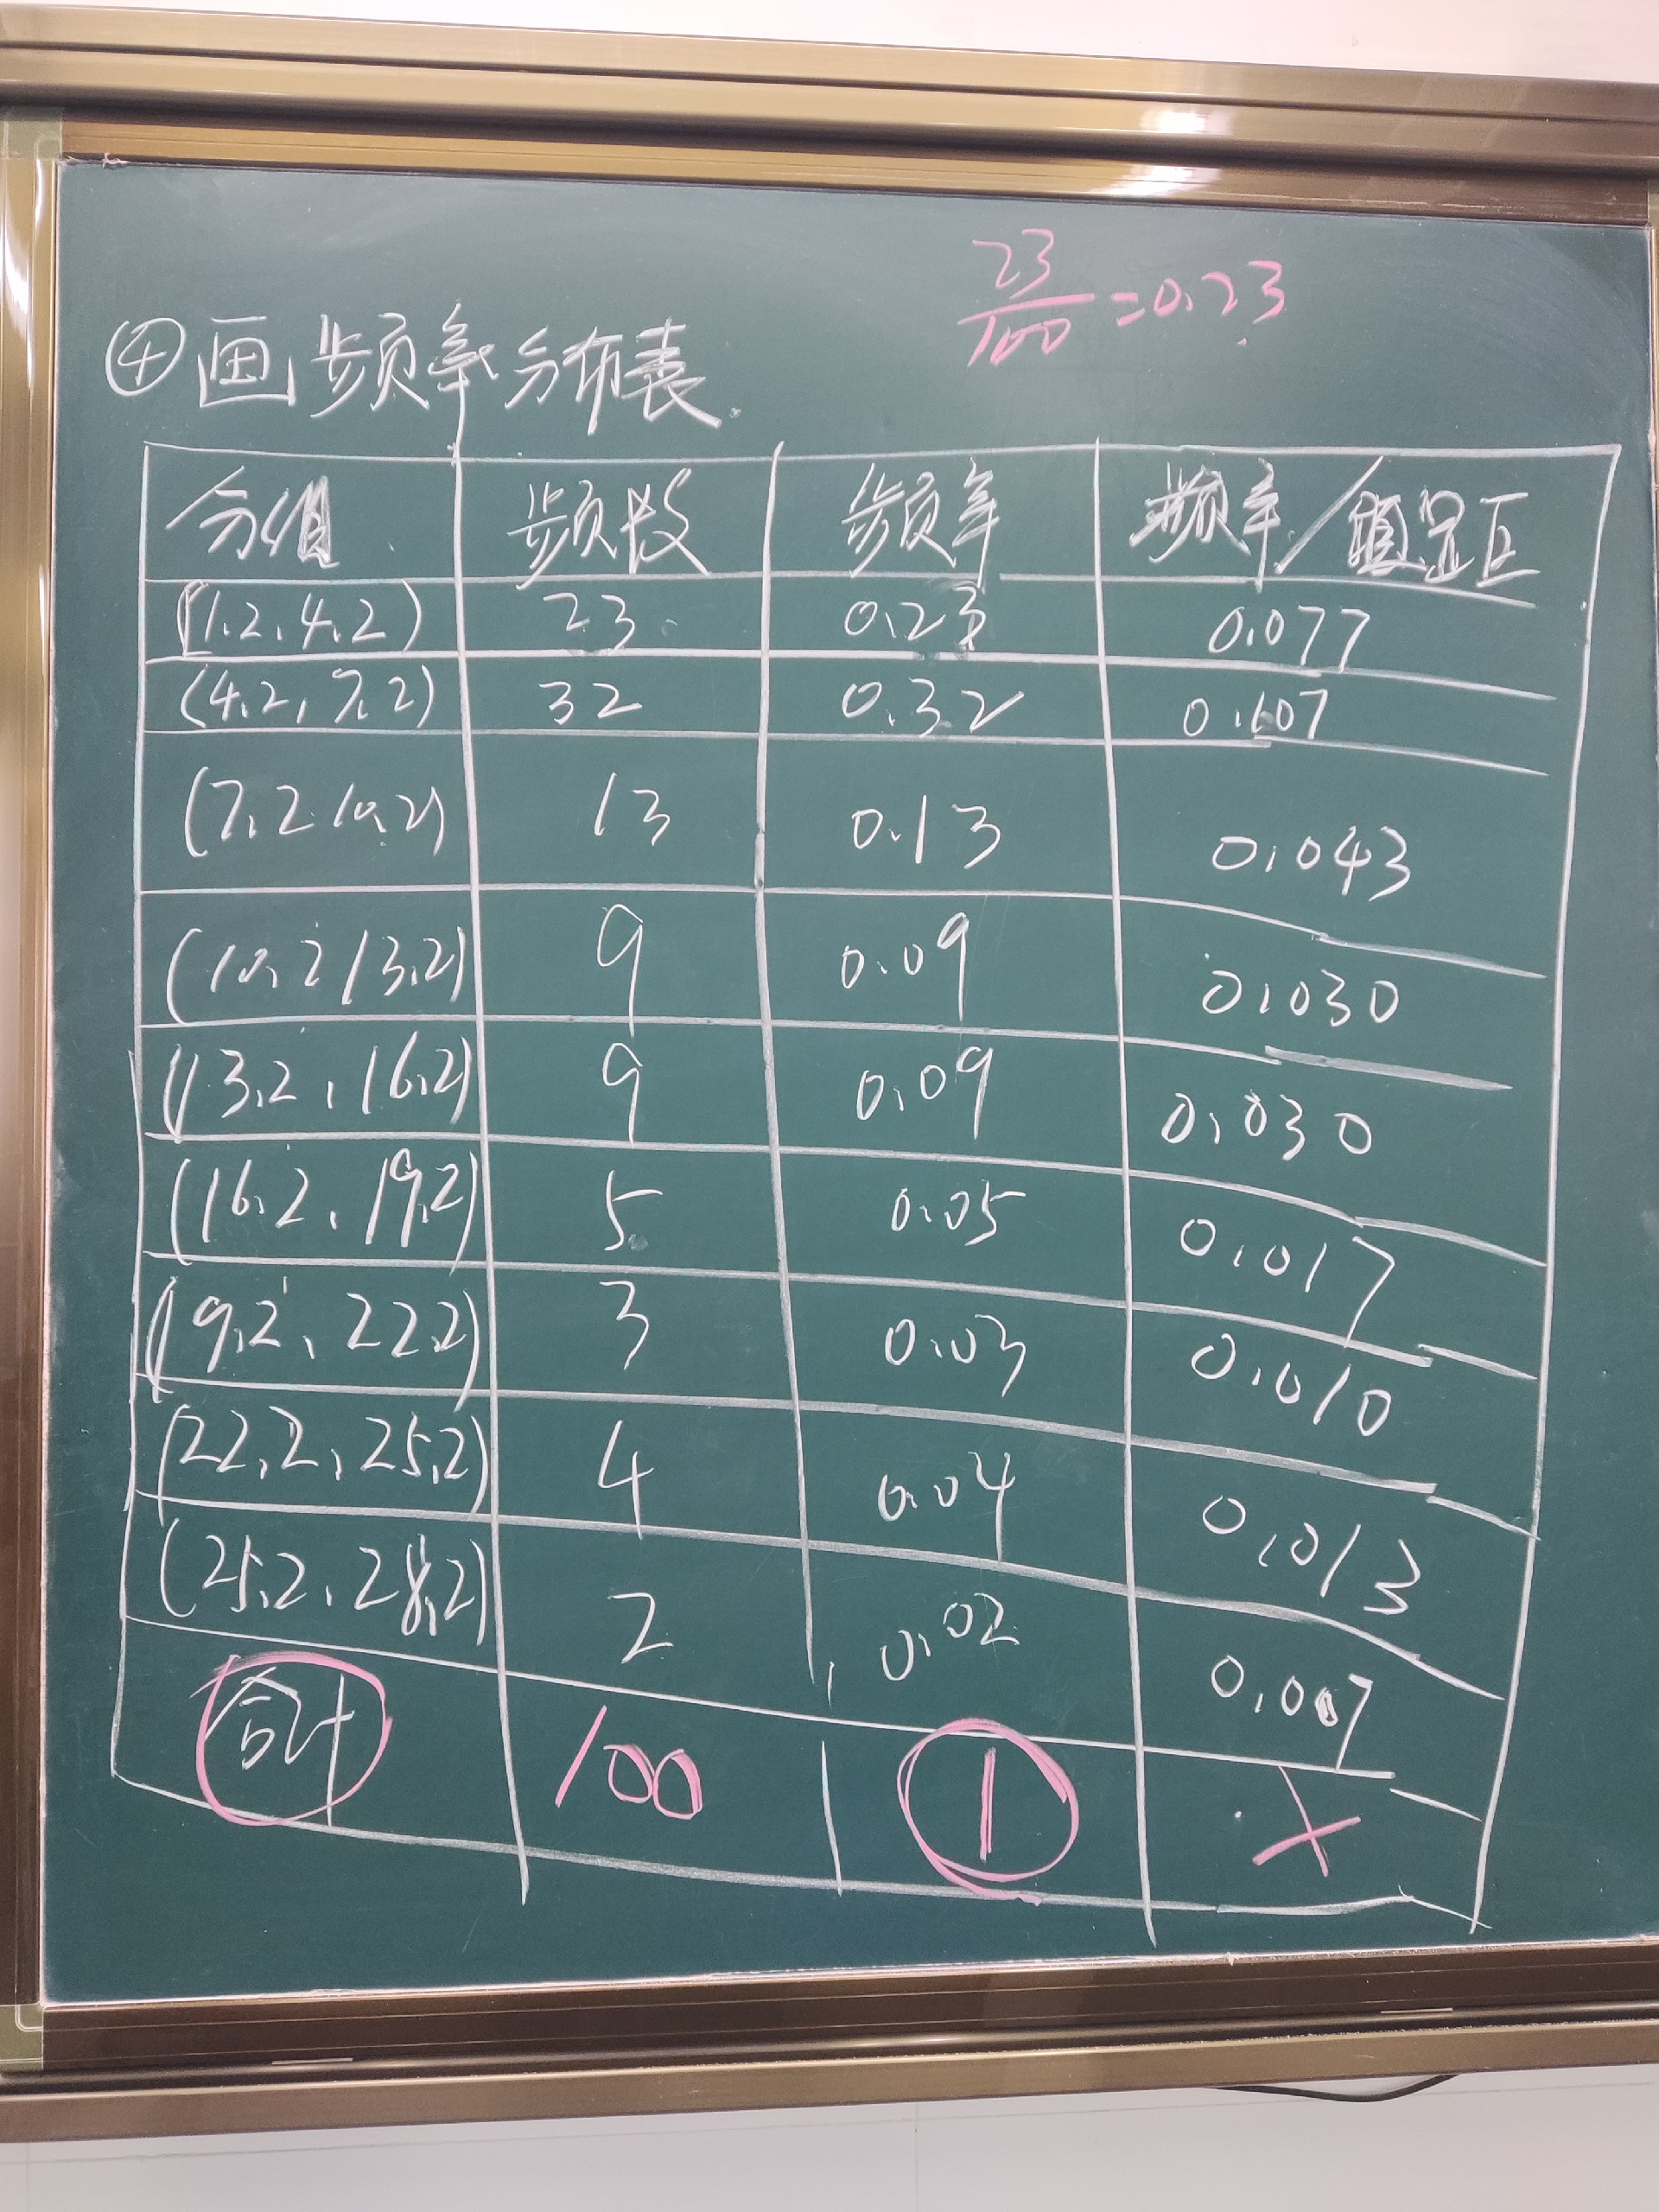 23/100=0.23
④画频率分布表.
分值 频数 频率 频率/组距
[1.2,4.2) 23 0.23 0.077
(4.2,7.2) 32 0.32 0.107
(7.2 10.2) 13 0.13 0.043
(10.2 13.2) 9 0.09 0.030
(13.2,16.2) 9 0.09 0.030
(16.2,19.2) 5 0.05 0.017
(19.2,22.2) 3 0.03 0.010
(22.2,25.2) 4 0.04 0.013
(25.2,28.2) 2 0.02 0.007
合计 100 1 ×